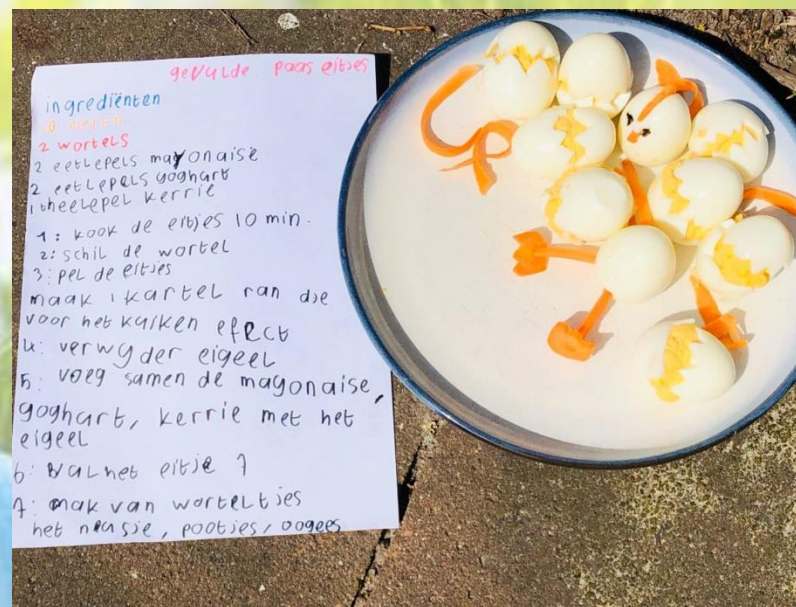 gevulde paas eitjes
ingrediënten
10 eitjes
2 wortels
2 eetlepels mayonaise
2 eetlepels yoghart
1 theelepel kerrie
1: kook de eitjes 10 min.
2: schil de wortel
3: pel de eitjes
maak 1 kartel ran dje
voor het kuiken efect
4: verwyder eigeel
5: voeg samen de mayonaise,
yoghart, kerrie met het
eigeel
6: val het eitje
7: mak van worteltjes
het neusje, pootjes, oogees